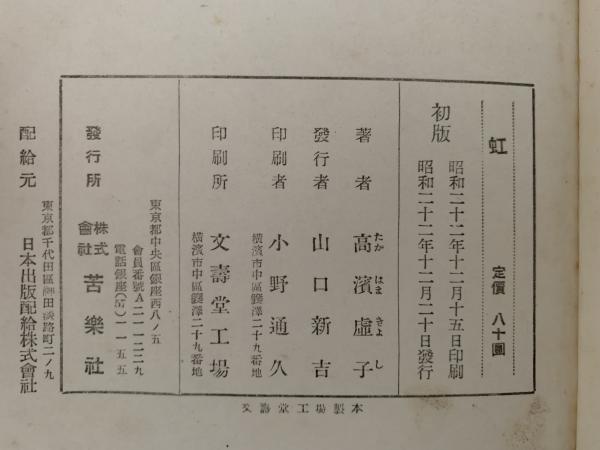 虹
定價 八十圓
初版
昭和二十二年十二月十五日印刷
昭和二十二年十二月二十日發行
著者 高濱虛子
たか はま きよ し
發行者 山口新吉
印刷者 小野通久
橫濱市中區麥澤二十九番地
印刷所 文壽堂工場
橫濱市中區麥澤二十九番地
東京都中央區銀座西八ノ五
發行所 株式會社 苦樂社
會員番號A二一一二二九
電話銀座(57)一一五五
東京都千代田區神田淡路町二ノ九
配給元 日本出版配給株式會社
文壽堂工場製本